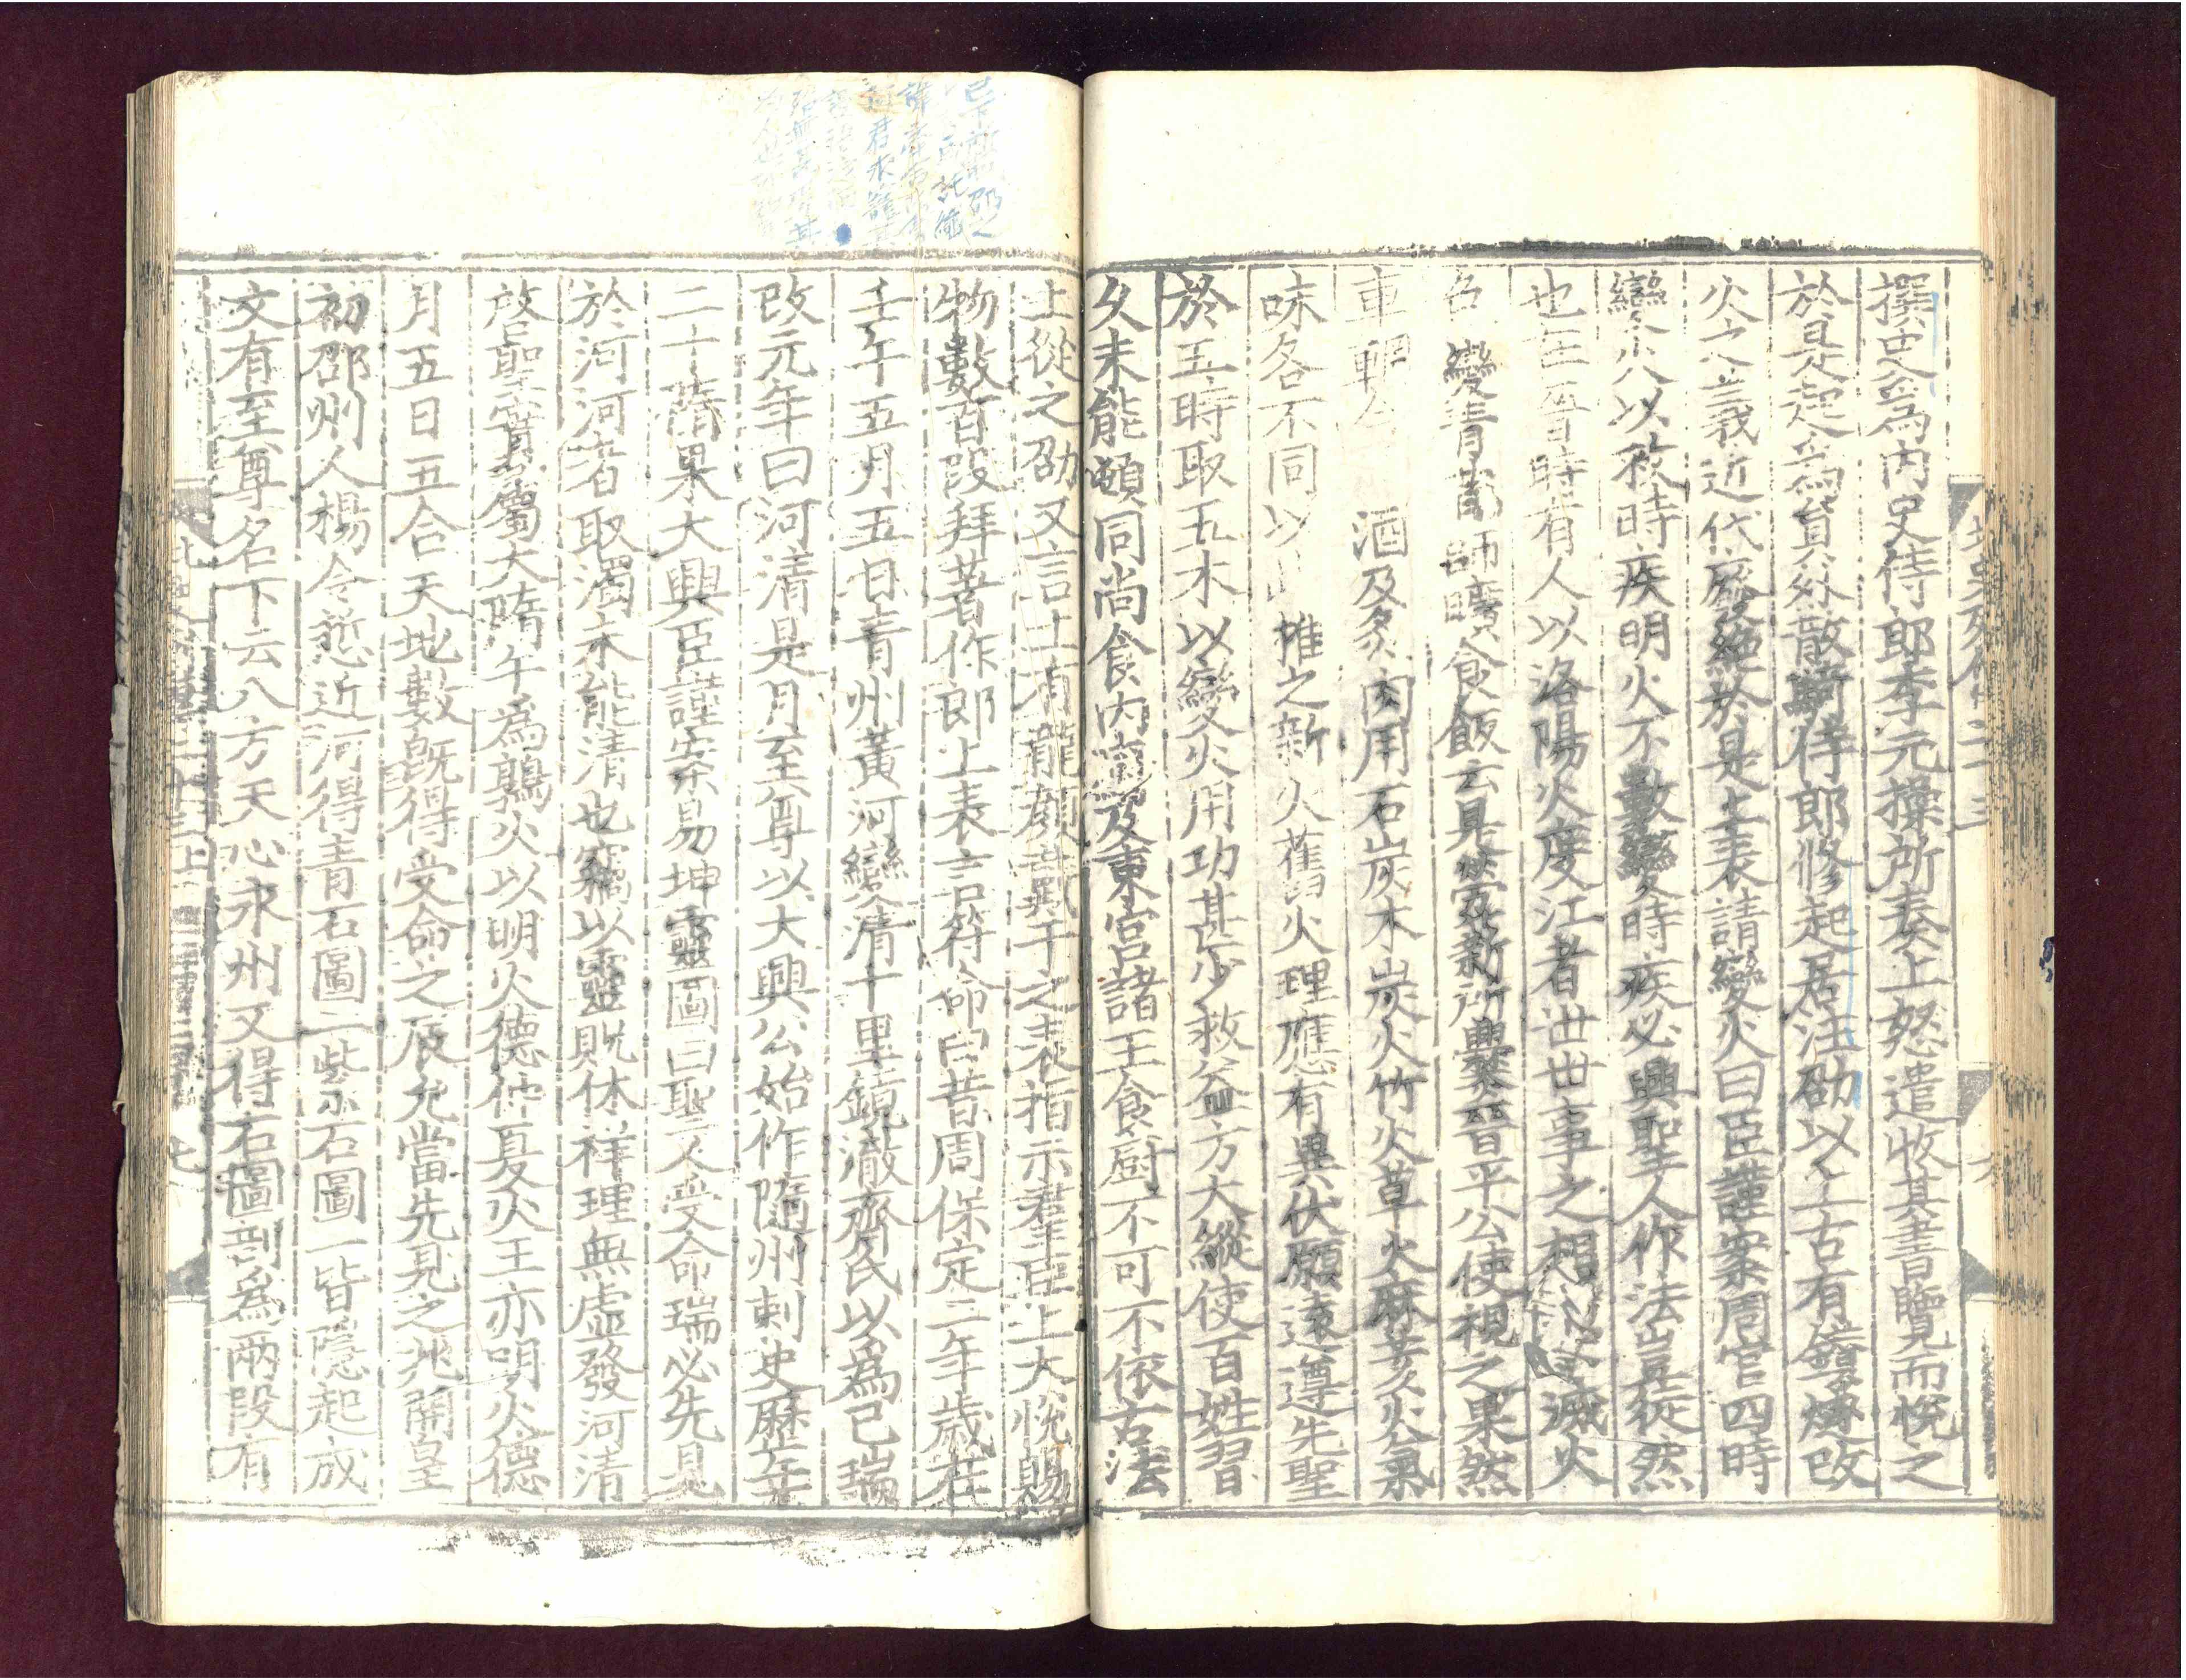 撰史爲内史侍郎李元操所奏上怒遣收其書覽而悅之
於是起爲員外散騎侍郎修起居注劭以上古有鑽燧改
火之義近代廢絶於是上表請變火曰臣謹案周官四時
變火以救時疾明火不數變時疾必興聖人作法豈徒然
也在晉時有人以洛陽火度江者世世事之相滅火
色變青昔師曠食飯云是勞薪所爨晉平公使視之果然
車輞今酒及炙肉用石炭木炭火竹火草火麻荄火氣
味各不同以推之新火舊火理應有異伏願遠遵先聖
於五時取五木以變火用功甚少救益方大縱使百姓習
久未能頓同尚食内廚及東宫諸王食厨不可不依古法
上從之劭又言上有龍顔戴干之表指示羣臣上大悅賜
物數百段拜著作郎上表言符命曰昔周保定二年歲在
壬午五月五日青州黃河變清十里鏡澈齊氏以爲已瑞
改元年曰河清是月至尊以大興公始作隨州刺史歷年
二十隋果大興臣謹案易坤靈圖曰聖人受命瑞必先見
於河河者取濁未能清也竊以靈貺休祥理無虛發河清
啓聖實屬大隋午為鶉火以明火德仲夏火王亦明火德
月五日五合天地數旣得受命之辰允當先見之兆開皇
初邵州人楊令悊近河得青石圖一紫石圖一皆隱起成
文有至尊名下云八方天心永州又得石圖剖爲兩段有